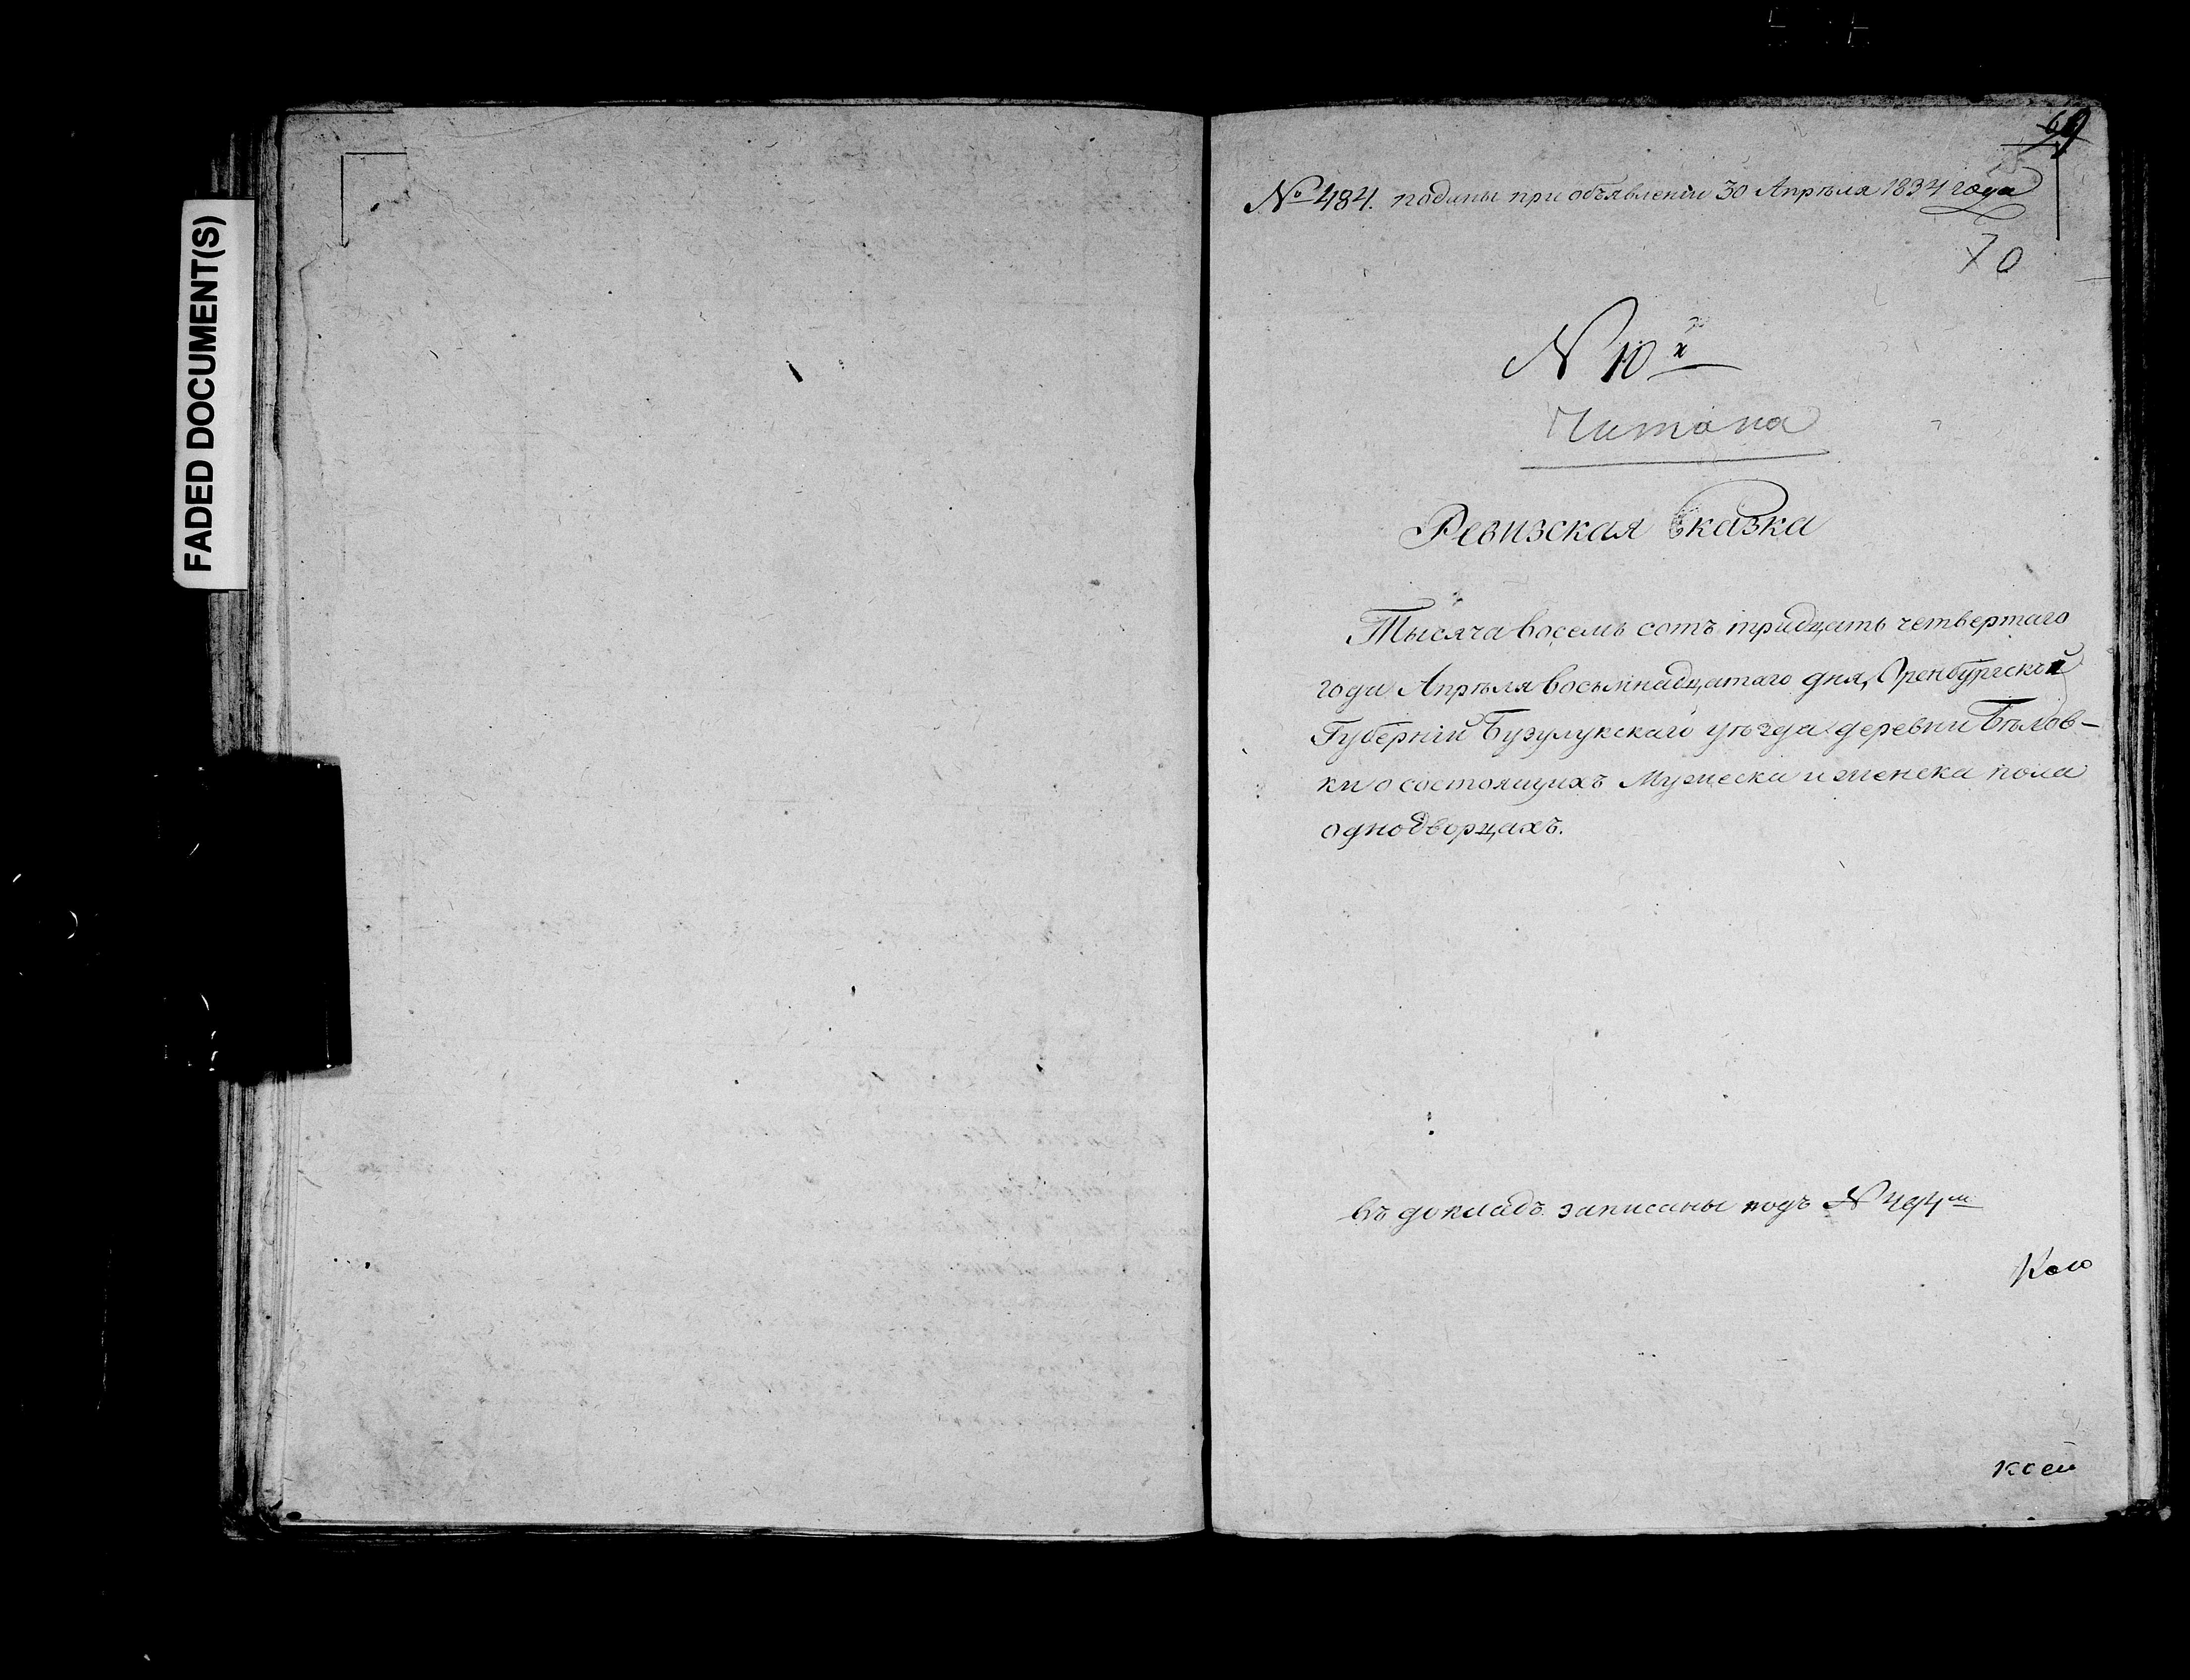 FADED DOCUMENT(S)
69
№ 484. поданы при объявленіи 30 Апрѣля 1834 года
70
N 10
Читана
Ревизская Сказка
Тысяча восемь сотъ тридцать четвертаго
года Апрѣля восьмнадцатаго дня, Оренбургской
Губерніи Бузулукскаго уѣзда деревни Бѣлов-
ки о состоящихъ Мужеска и женска пола
однодворцахъ.
въ докладъ записаны подъ N 494м
коей